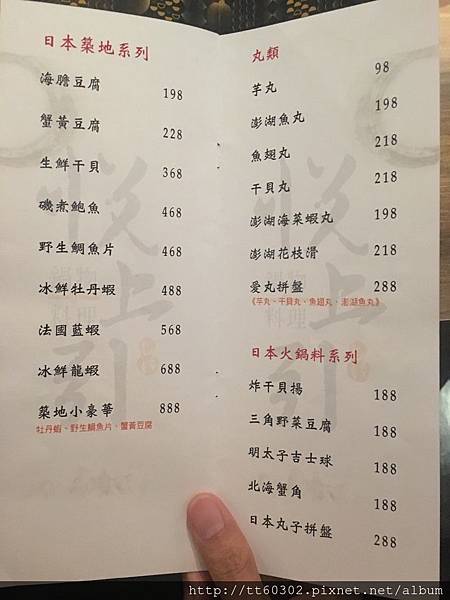 日本築地系列
海膽豆腐 198
蟹黃豆腐 228
生鮮干貝 368
磯煮鮑魚 468
野生鯛魚片 468
冰鮮牡丹蝦 488
法國藍蝦 568
冰鮮龍蝦 688
築地小豪華 888
牡丹蝦、野生鯛魚片、蟹黃豆腐
丸類
芋丸 98
澎湖魚丸 198
魚翅丸 218
干貝丸 218
澎湖海菜蝦丸 198
澎湖花枝滑 218
爱丸拼盤 288
《芋丸、干貝丸、魚翅丸、澎湖魚丸》
日本火鍋料系列
炸干貝揚 188
三角野菜豆腐 188
明太子吉士球 188
北海蟹角 188
日本丸子拼盤 288
悅上引
鍋物
料理
http://tt60302.pixnet.net/album